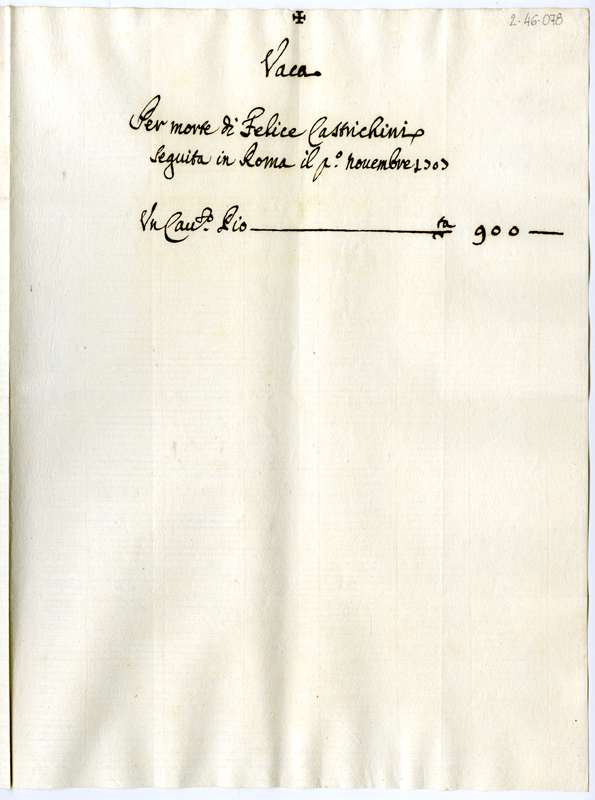 2-46-078
Vaca
Per morte di Felice Castrichini
seguita in Roma il p.º novembre 1703
Un Cau.to Pio ta 900